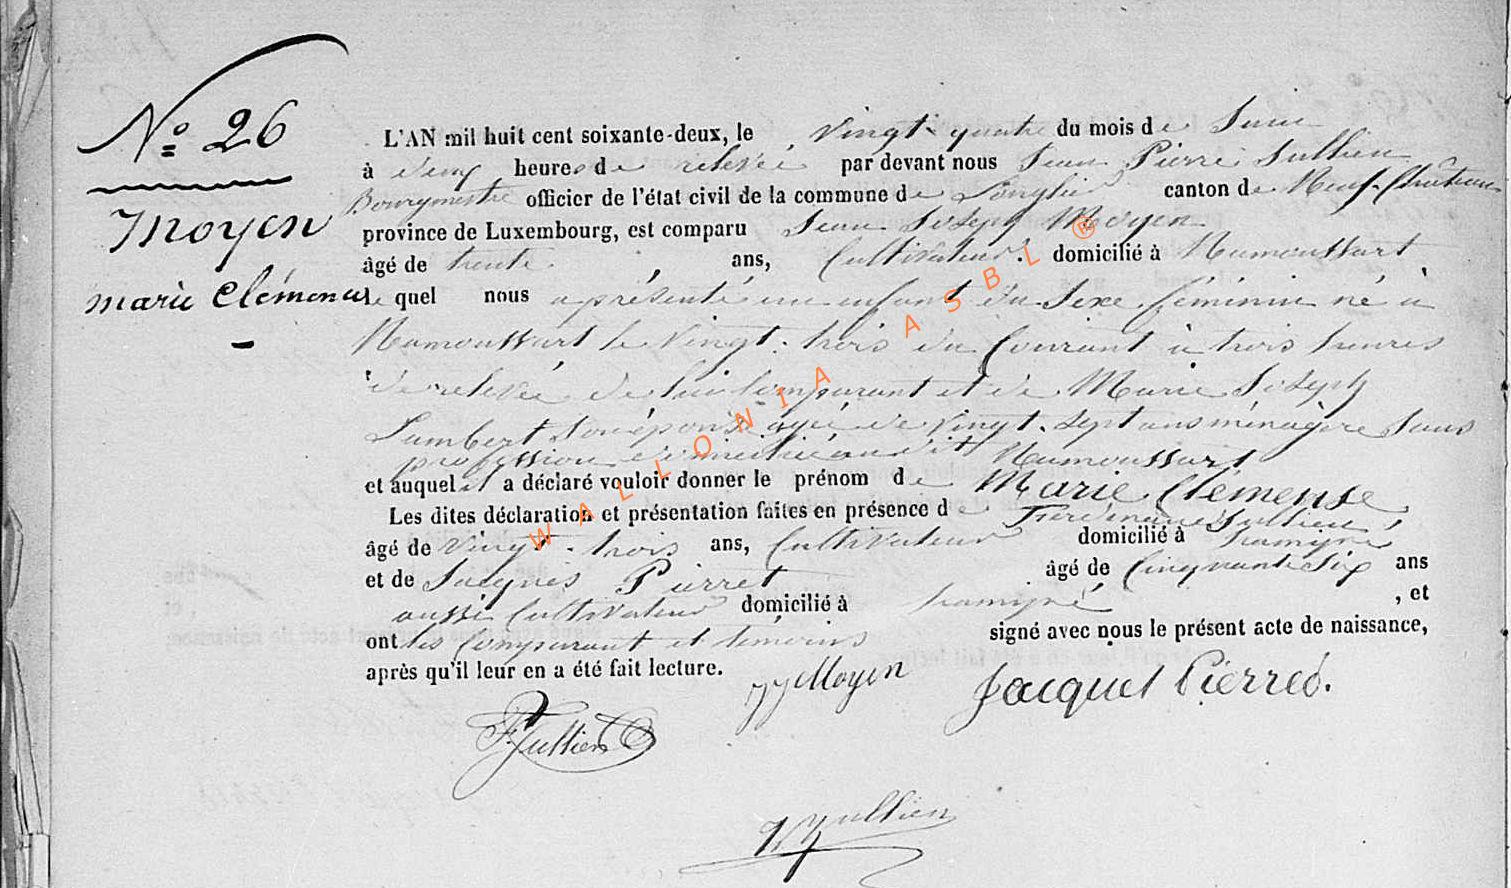 N° 26
Moyen
Marie Clémence
L'AN mil huit cent soixante-deux, le vingt-quatre du mois de Juin
à deux heures de relevée par devant nous Jean Pierre Jullien
Bourgmestre officier de l'état civil de la commune de Longlier canton de Neuf-Château
province de Luxembourg, est comparu Jean Joseph Moyen
âgé de trente ans, Cultivateur domicilié à Namoussart
le quel nous a présenté un enfant du Sexe féminin né à
Namoussart le vingt-trois du Courant à trois heures
de relevée de lui Comparant et de Marie Joseph
Lambert Son épouse agée de vingt-sept ans ménagère Sans
profession domiciliée au dit Namoussart
et auquel il a déclaré vouloir donner le prénom de Marie Clémense
Les dites déclaration et présentation faites en présence de Ferdinand Jullien
âgé de vingt-trois ans, Cultivateur domicilié à hamipré
et de Jacques Pierret âgé de Cinquante Six ans
aussi Cultivateur domicilié à hamipré, et
ont les Comparant et témoins signé avec nous le présent acte de naissance,
après qu'il leur en a été fait lecture.
JJ Moyen
Jacquet Pierret.
F Jullien
Jullien
WALLONIA ASBL ®